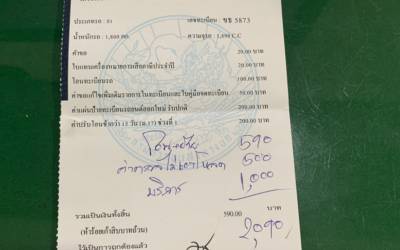 ประเภทรถ : 01 เลขทะเบียน ขข 5873
น้ำหนักรถ : 1,600 กก. ความจุรถ : 1,590 C.C
ค่าคำขอ 20.00 บาท
ใบแทนเครื่องหมายการเสียภาษีประจำปี 20.00 บาท
โอนทะเบียนรถ 100.00 บาท
ค่าขอแก้ไขเพิ่มเติมรายการในทะเบียนและใบคู่มือจดทะเบียน 50.00 บาท
ค่าแผ่นป้ายทะเบียนรถยนต์ออกใหม่ รับปกติ 200.00 บาท
ค่าปรับโอนช้ากว่า 15 วัน (ม.17) ช่วงที่ 1 200.00 บาท
590
500
บริการ 1,000
รวมเป็นเงินทั้งสิ้น 590.00 บาท
(ห้าร้อยเก้าสิบบาทถ้วน) 2,090
ไว้เป็นการถูกต้องแล้ว